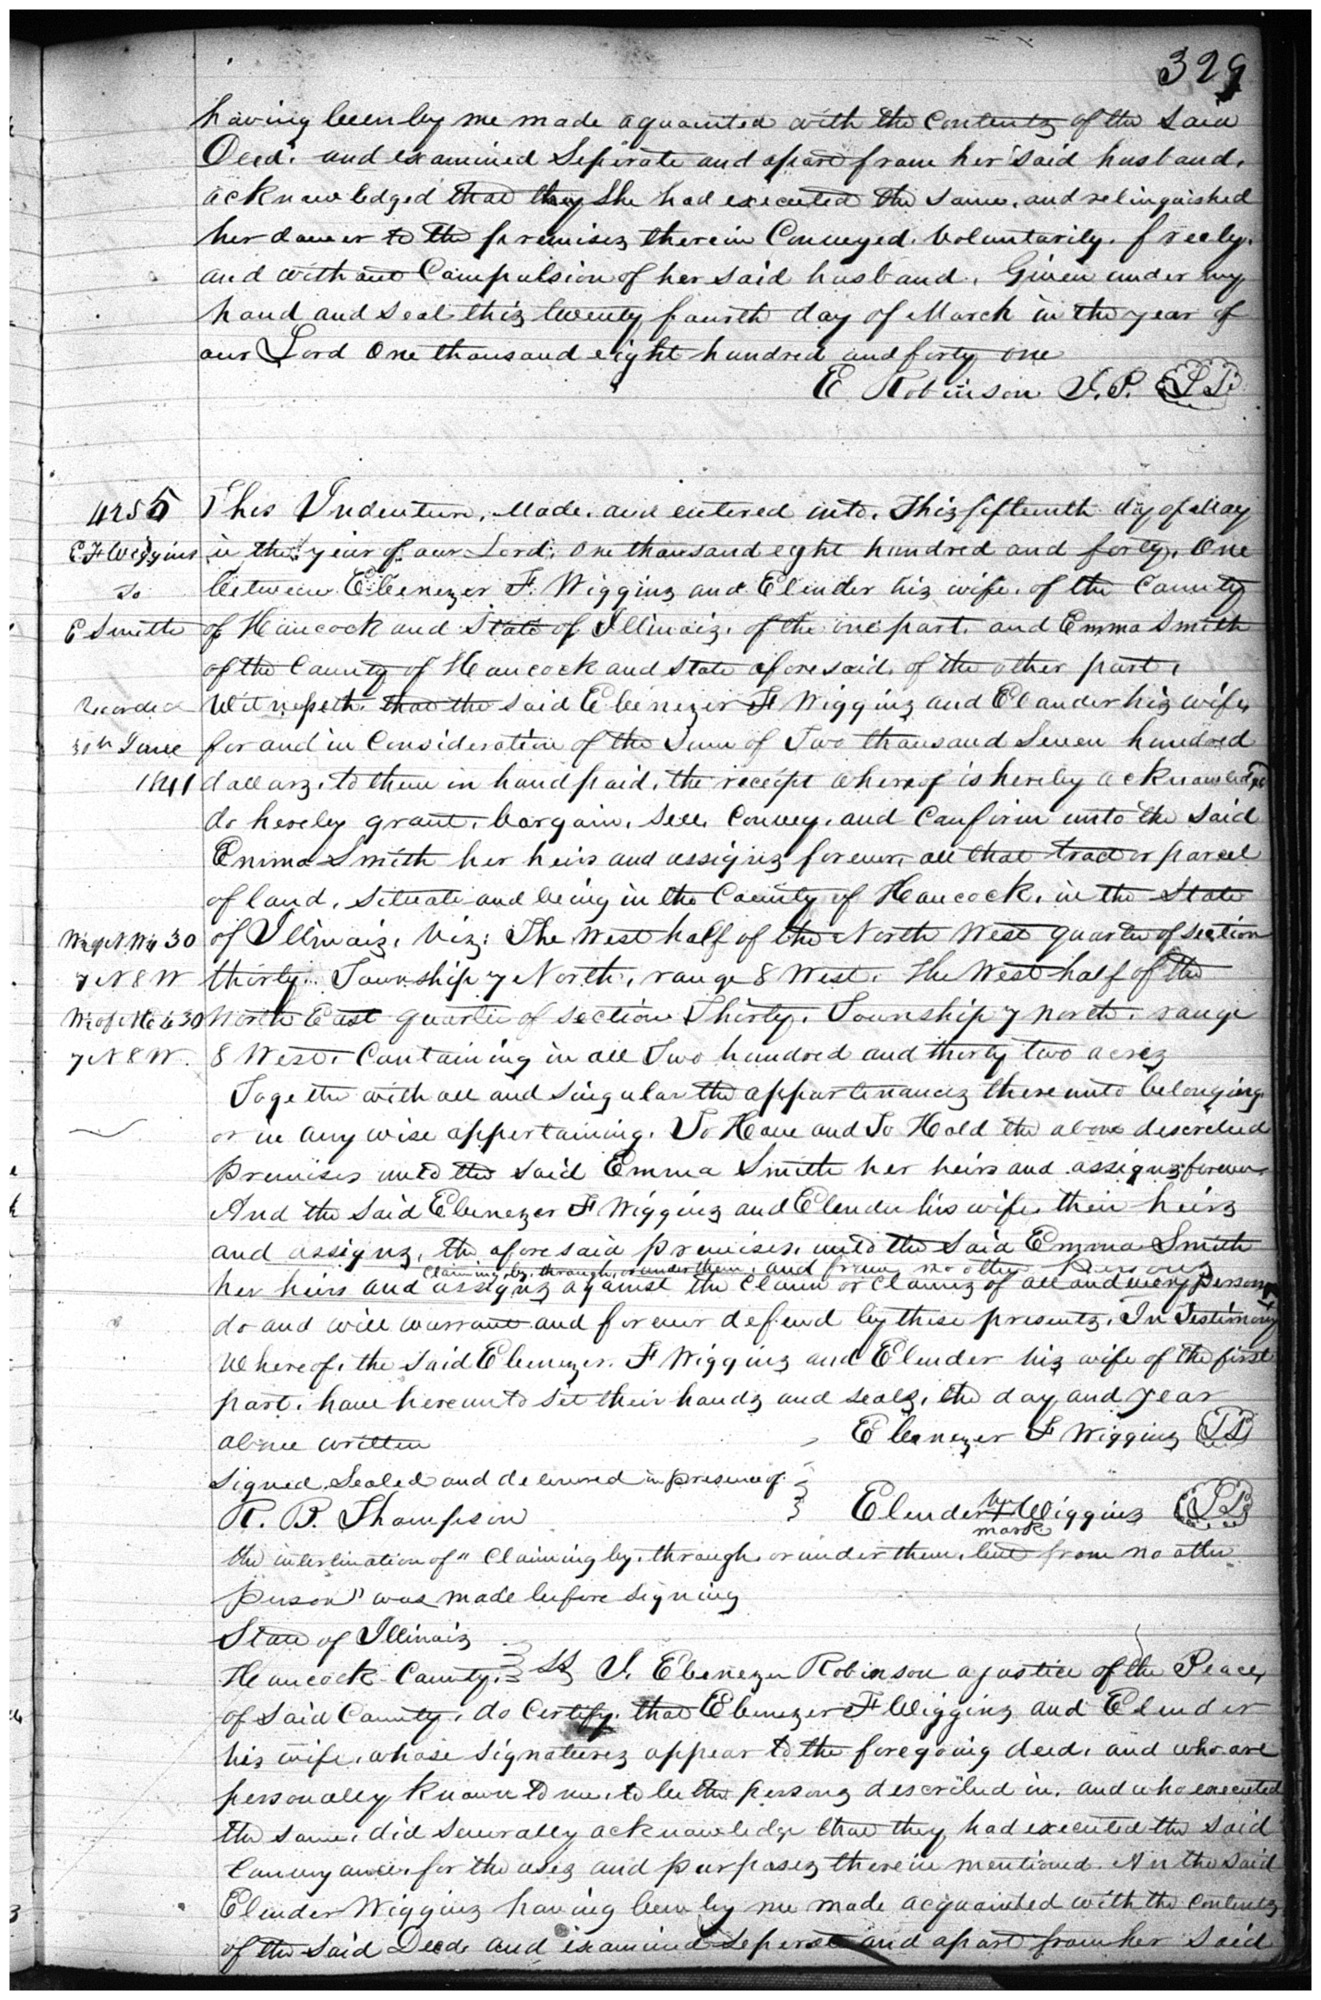 329
having been by me made aquainted with the contents of the said
Deed. and examined Seperate and apart from her said husband.
acknowledged that they she had executed the same, and relinquished
her dower to the premises therein Conveyed. Voluntarily. freely.
and without Compulsion of her said husband. Given under my
hand and Seal this twenty fourth day of March in the year of
our Lord One thousand eight hundred and forty one
E Robinson J.P.
4255 This Indenture, Made and entered into, This fifteenth day of May
E F Wiggins in the year of our Lord, One thousand eight hundred and forty, One
To between Ebenezer F. Wiggins and Elender his wife, of the County
E Smith of Hancock and State of Illinois, of the one part, and Emma Smith
of the County of Hancock and State aforesaid, of the other part,
Recorded Witnesseth. that the said Ebenezer F Wiggins and Elander his wife,
30th June for and in Consideration of the Sum of Two thousand Seven hundred
1841 dollars, to them in hand paid, the receipt whereof is hereby acknowledged
do hereby grant, bargain, sell, Convey, and Confirm unto the said
Emma Smith her heirs and assigns forever, all that tract or parcel
of land, Situate and being in the County of Hancock, in the State
W½ of N W¼ 30 of Illinois, Viz: The West half of the North West quarter of section
7 N 8 W thirty. Township 7 North, range 8 West. The West half of the
W½ of Ne ¼ 30 North East quarter of section Thirty, Township 7 north, range
7 N 8 W. 8 West. Containing in all Two hundred and thirty two acres
Together with all and singular the appurtenances thereunto belonging
or in any wise appertaining. To Have and To Hold the above described
Premises unto the said Emma Smith her heirs and assigns forever
And the said Ebenezer F Wiggins and Elender his wife, their heirs
and assigns, the aforesaid premises, unto the said Emma Smith
claiming by, through, or under them, and from no other Persons
her heirs and assigns against the claim or claims of all and every person
do and will warrant and forever defend by these presents, In Testimony
Whereof, the said Ebenezer. F Wiggins and Elender his wife of the first
part, have hereunto set their hands and seals, the day and year
above written Ebenezer F Wiggins
Signed, Sealed and delivered in presence of
R. B. Thompson Elender her X mark Wiggins
the interlination of " Claiming by, through, or under them, but from no other
person" was made before signing
State of Illinois
Hancock County. ss I. Ebenezer Robinson a justice of the Peace,
of said County, do Certify, that Ebenezer F Wiggins and Elender
his wife, whose signatures appear to the foregoing deed, and who are
personally known to me, to be the persons described in, and who executed
the same, did severally acknowledge that they had executed the said
Conveyance, for the uses and purposes therein mentioned. An the said
Elender Wiggins having been by me made acquainted with the contents
of the said Deed, and examined seperate and apart from her said